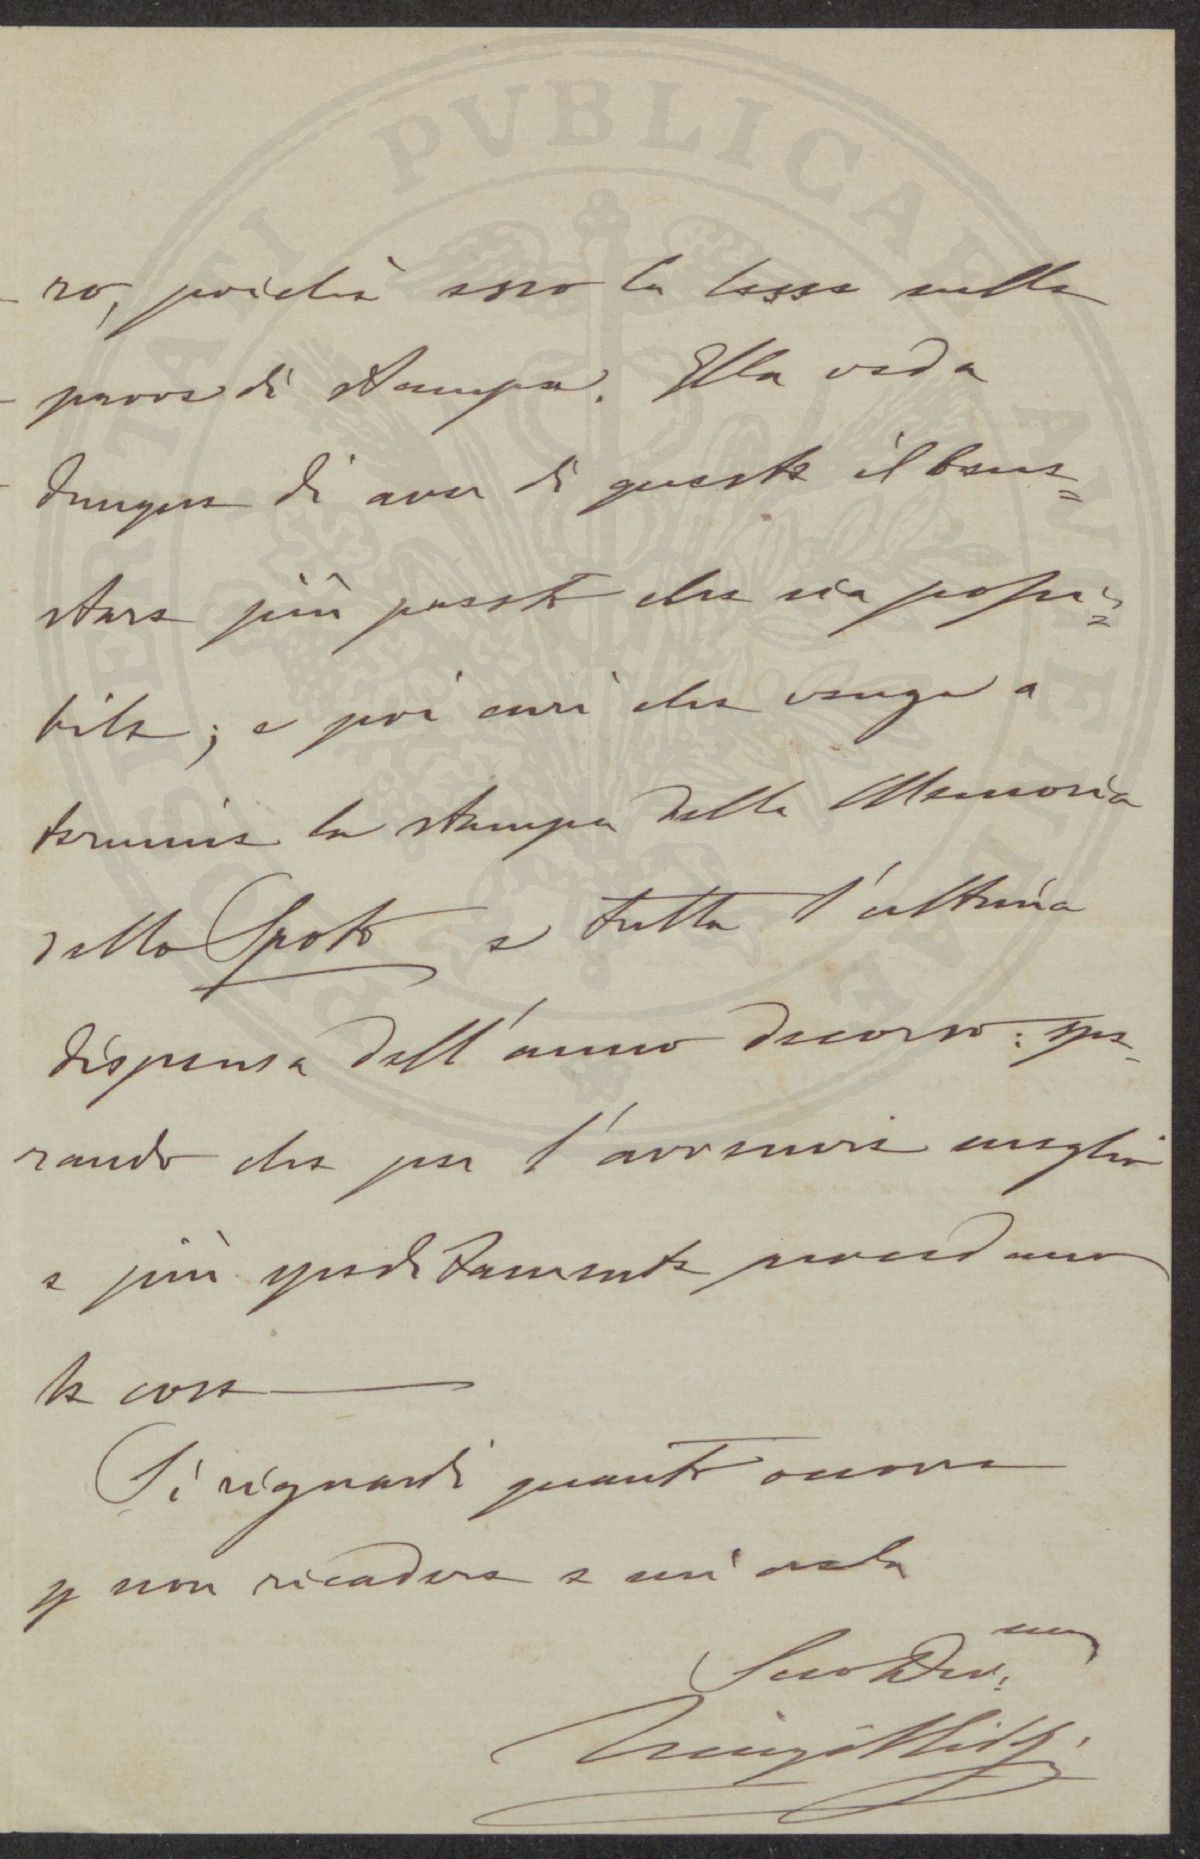 ro, poichè esso la lesse nelle
prove di stampa. Ella veda
dunque di aver di queste il bene=
stare più presto che sia possi=
bile; e poi curi che venga a
termine la stampa della Memoria
dello Spoto e tutta l'ultima
dispensa dell'anno decorso: spe-
rando che per l'avvenire meglio
e più speditamente procedano
le cose
Si riguardi quanto occorre
p non ricadere e mi creda
Suo Dev.mo